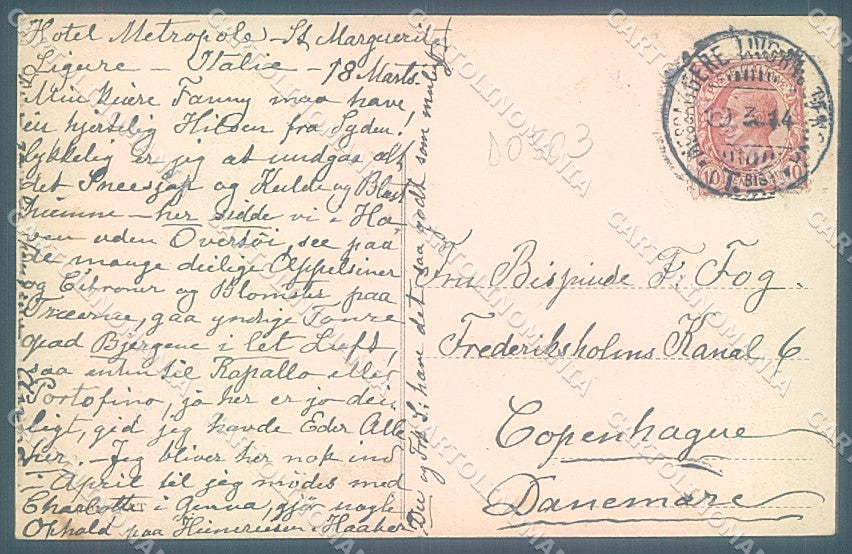 Hotel Metropole - St Marguerite
Ligure - Italie - 18 Marts.
Min kiere Fanny maa have
en hjertelig Hilsen fra Syden!
Lykkelig er jeg at undgaa alt
det Sneesjap og Kulde og Blæst
hiemme - her sidde vi i Ha-
ven uden Overtöi, see paa
de mange deilige Appelsiner
og Citroner og Blomster paa
Træerne, gaa yndige Toure
opad Bjergene i let Luft!
saa enten til Rapallo eller
Portofino, ja her er jo dei-
ligt, gid jeg havde Eder Alle
her. - Jeg bliver her nok ind
i April til jeg mödes med
Charlotte i Genua, gjör nogle
Ophold paa Hiemreisen. Haaber
Du og Fr. S. have det saa godt som muligt
10 10
3.14
Fru Bispinde F. Fog.
Frederiksholms Kanal 6
Copenhague
Danemark
CARTOLINOMANIA